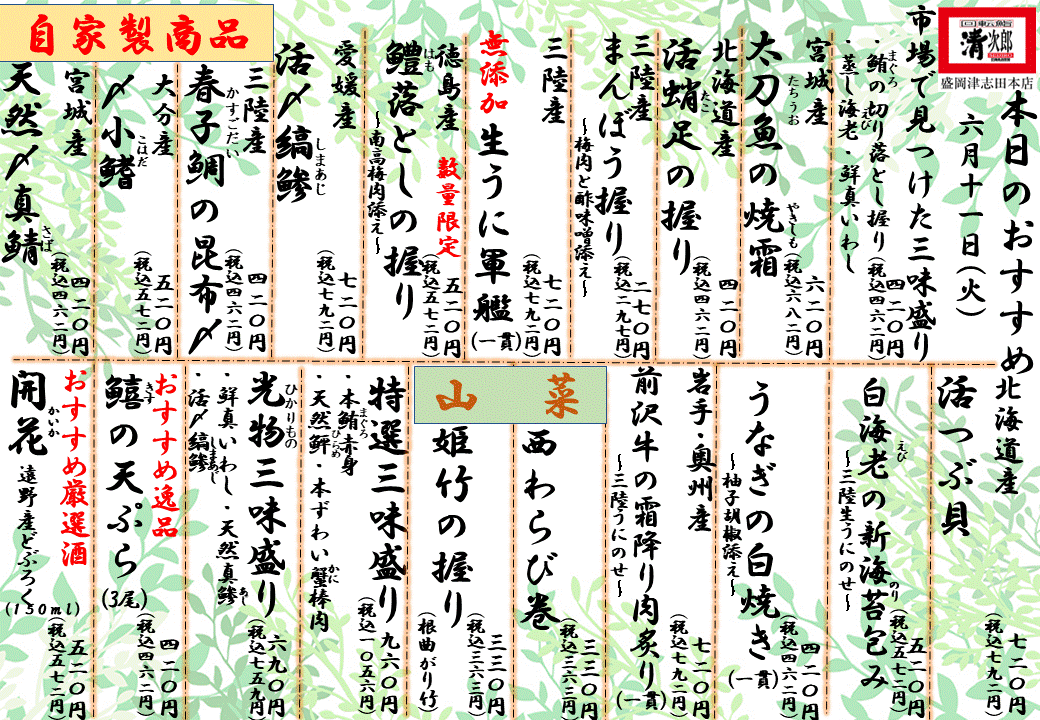 回転鮨
清次郎
盛岡津志田本店
本日のおすすめ
六月十一日(火)
市場で見つけた三味盛り
・鮪の切り落とし握り
まぐろ
・蒸し海老・鮮真いわし
えび
四二〇円
(税込四六二円)
宮城産
太刀魚の焼霜
たちうお
やきしも
六二〇円
(税込六八二円)
北海道産
活蛸足の握り
たこ
四二〇円
(税込四六二円)
三陸産
まんぼう握り
~梅肉と酢味噌添え~
二七〇円
(税込二九七円)
三陸産
無添加 生うに軍艦
(一貫)
七二〇円
(税込七九二円)
徳島産
鱧落としの握り
はも
~南高梅肉添え~
数量限定
五二〇円
(税込五七二円)
愛媛産
活〆縞鯵
しまあじ
七二〇円
(税込七九二円)
三陸産
春子鯛の昆布〆
かすごだい
四二〇円
(税込四六二円)
自家製商品
大分産
〆小鰭
こはだ
五二〇円
(税込五七二円)
宮城産
天然〆真鯖
さば
四二〇円
(税込四六二円)
北海道産
活つぶ貝
七二〇円
(税込七九二円)
白海老の新海苔包み
えび
のり
~三陸生うにのせ~
五二〇円
(税込五七二円)
うなぎの白焼き
(一貫)
~柚子胡椒添え~
四二〇円
(税込四六二円)
岩手・奥州産
前沢牛の霜降り肉炙り
(一貫)
~三陸うにのせ~
七二〇円
(税込七九二円)
山菜
西わらび巻
三三〇円
(税込三六三円)
姫竹の握り
(根曲がり竹)
三三〇円
(税込三六三円)
特選三味盛り
・本鮪赤身
まぐろ
・天然鮃・本ずわい蟹棒肉
ひらめ
かに
九六〇円
(税込一〇五六円)
光物三味盛り
ひかりもの
・鮮真いわし・天然真鯵
あじ
・活〆縞鯵
しまあじ
六九〇円
(税込七五九円)
おすすめ逸品
鱚の天ぷら
きす
(3尾)
四二〇円
(税込四六二円)
おすすめ厳選酒
開花
かいか
遠野産どぶろく
(150ml)
五二〇円
(税込五七二円)